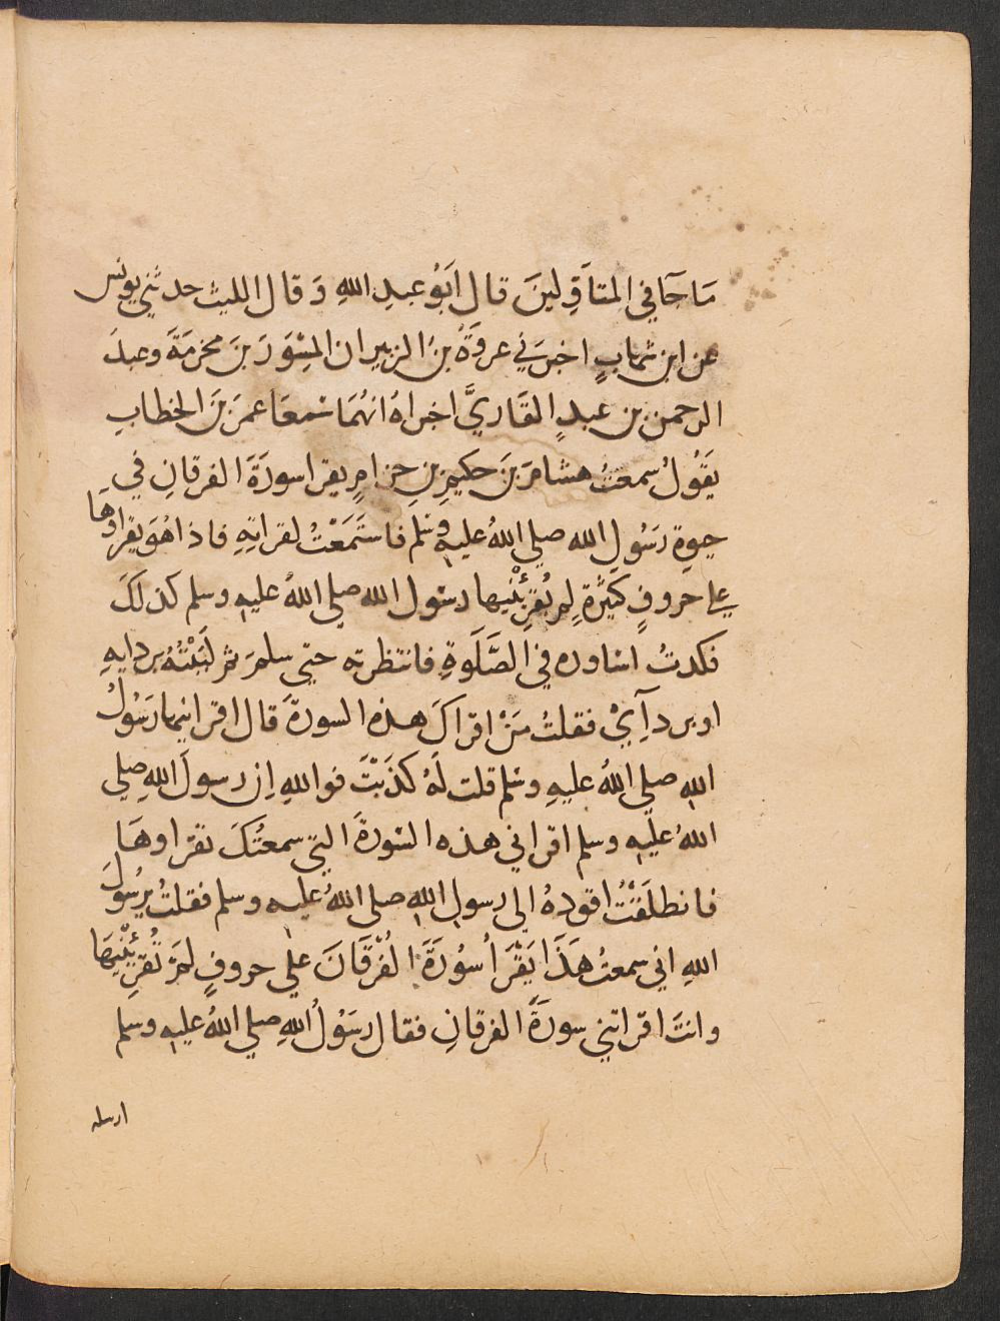 مَا جَآ في المتَأَوِّلينَ قال اَبُو عبدِ اللهِ وَقال الليث حدثني يونس
عن ابن شهابٍ اخبرَني عروَةُ بنُ الزبير ان المِسْوَرَ بنَ مخرمَةَ وعبدَ
الرحمن بن عبدٍ القَاريَّ اخبراهُ انهُمَا سَمعَا عمرَ بنَ الخطابِ
يَقُولُ سمعتُ هشامَ بَنَ حكيمِ بنِ حِزامٍ يقرا سورَةَ الفرقانِ في
حيوة رَسُولِ الله صلي اللهُ عليهِ وسَلم فاستَمَعْتُ لقراتِهِ فاذا هُوَ يقراوُهَا
علي حروفٍ كثيْرَةٍ لم يُقرِئْنيها رسُول الله صلي اللهُ عليهِ وسلم كذلكَ
فكدتُ اساوره في الصَّلَوةِ فانتظرته حتي سلمَ ثم لَبَبْتُهُ بردايهِ
او بردآِيْ فقلتُ مَنْ اقراكَ هذه السورةَ قال اقرانيها رَسُولُ
اللهِ صلي اللهُ عليهِ وسَلم قلت لَهُ كذَبْتَ فواللهِ اِن رسولَ اللهِ صلي
اللهُ عليهِ وسلم اقراني هذه السُورةَ التي سمعتُكَ تقراوهَا
فانطلَقْتُ اقودهُ الي رسولِ اللهِ صلي اللهُ عليهِ وسلم فقلتُ يرسُولَ
اللهِ اني سمعتُ هَذَا يَقْرَأُ سُوْرَةَ الفُرْقَانَ علي حروفٍ لمَ تُقرِئْنيهَا
وانتَ اقراتني سورَةَ الفرقانِ فقال رسَوُلُ اللهِ صلي اللهُ عليهِ وسلم
ارسله